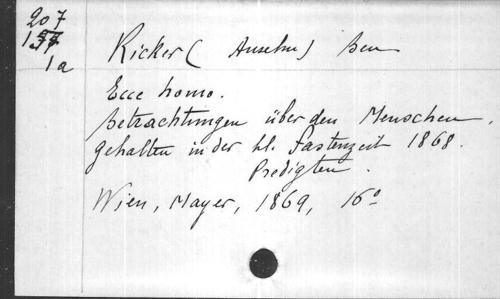 207
1
1a
Ricker (Anselm) Ben
Ecce homo.
Betrachtungen über den Menschen,
gehalten in der hl. Fastenzeit 1868.
Predigten.
Wien, Mayer, 1869, 16º